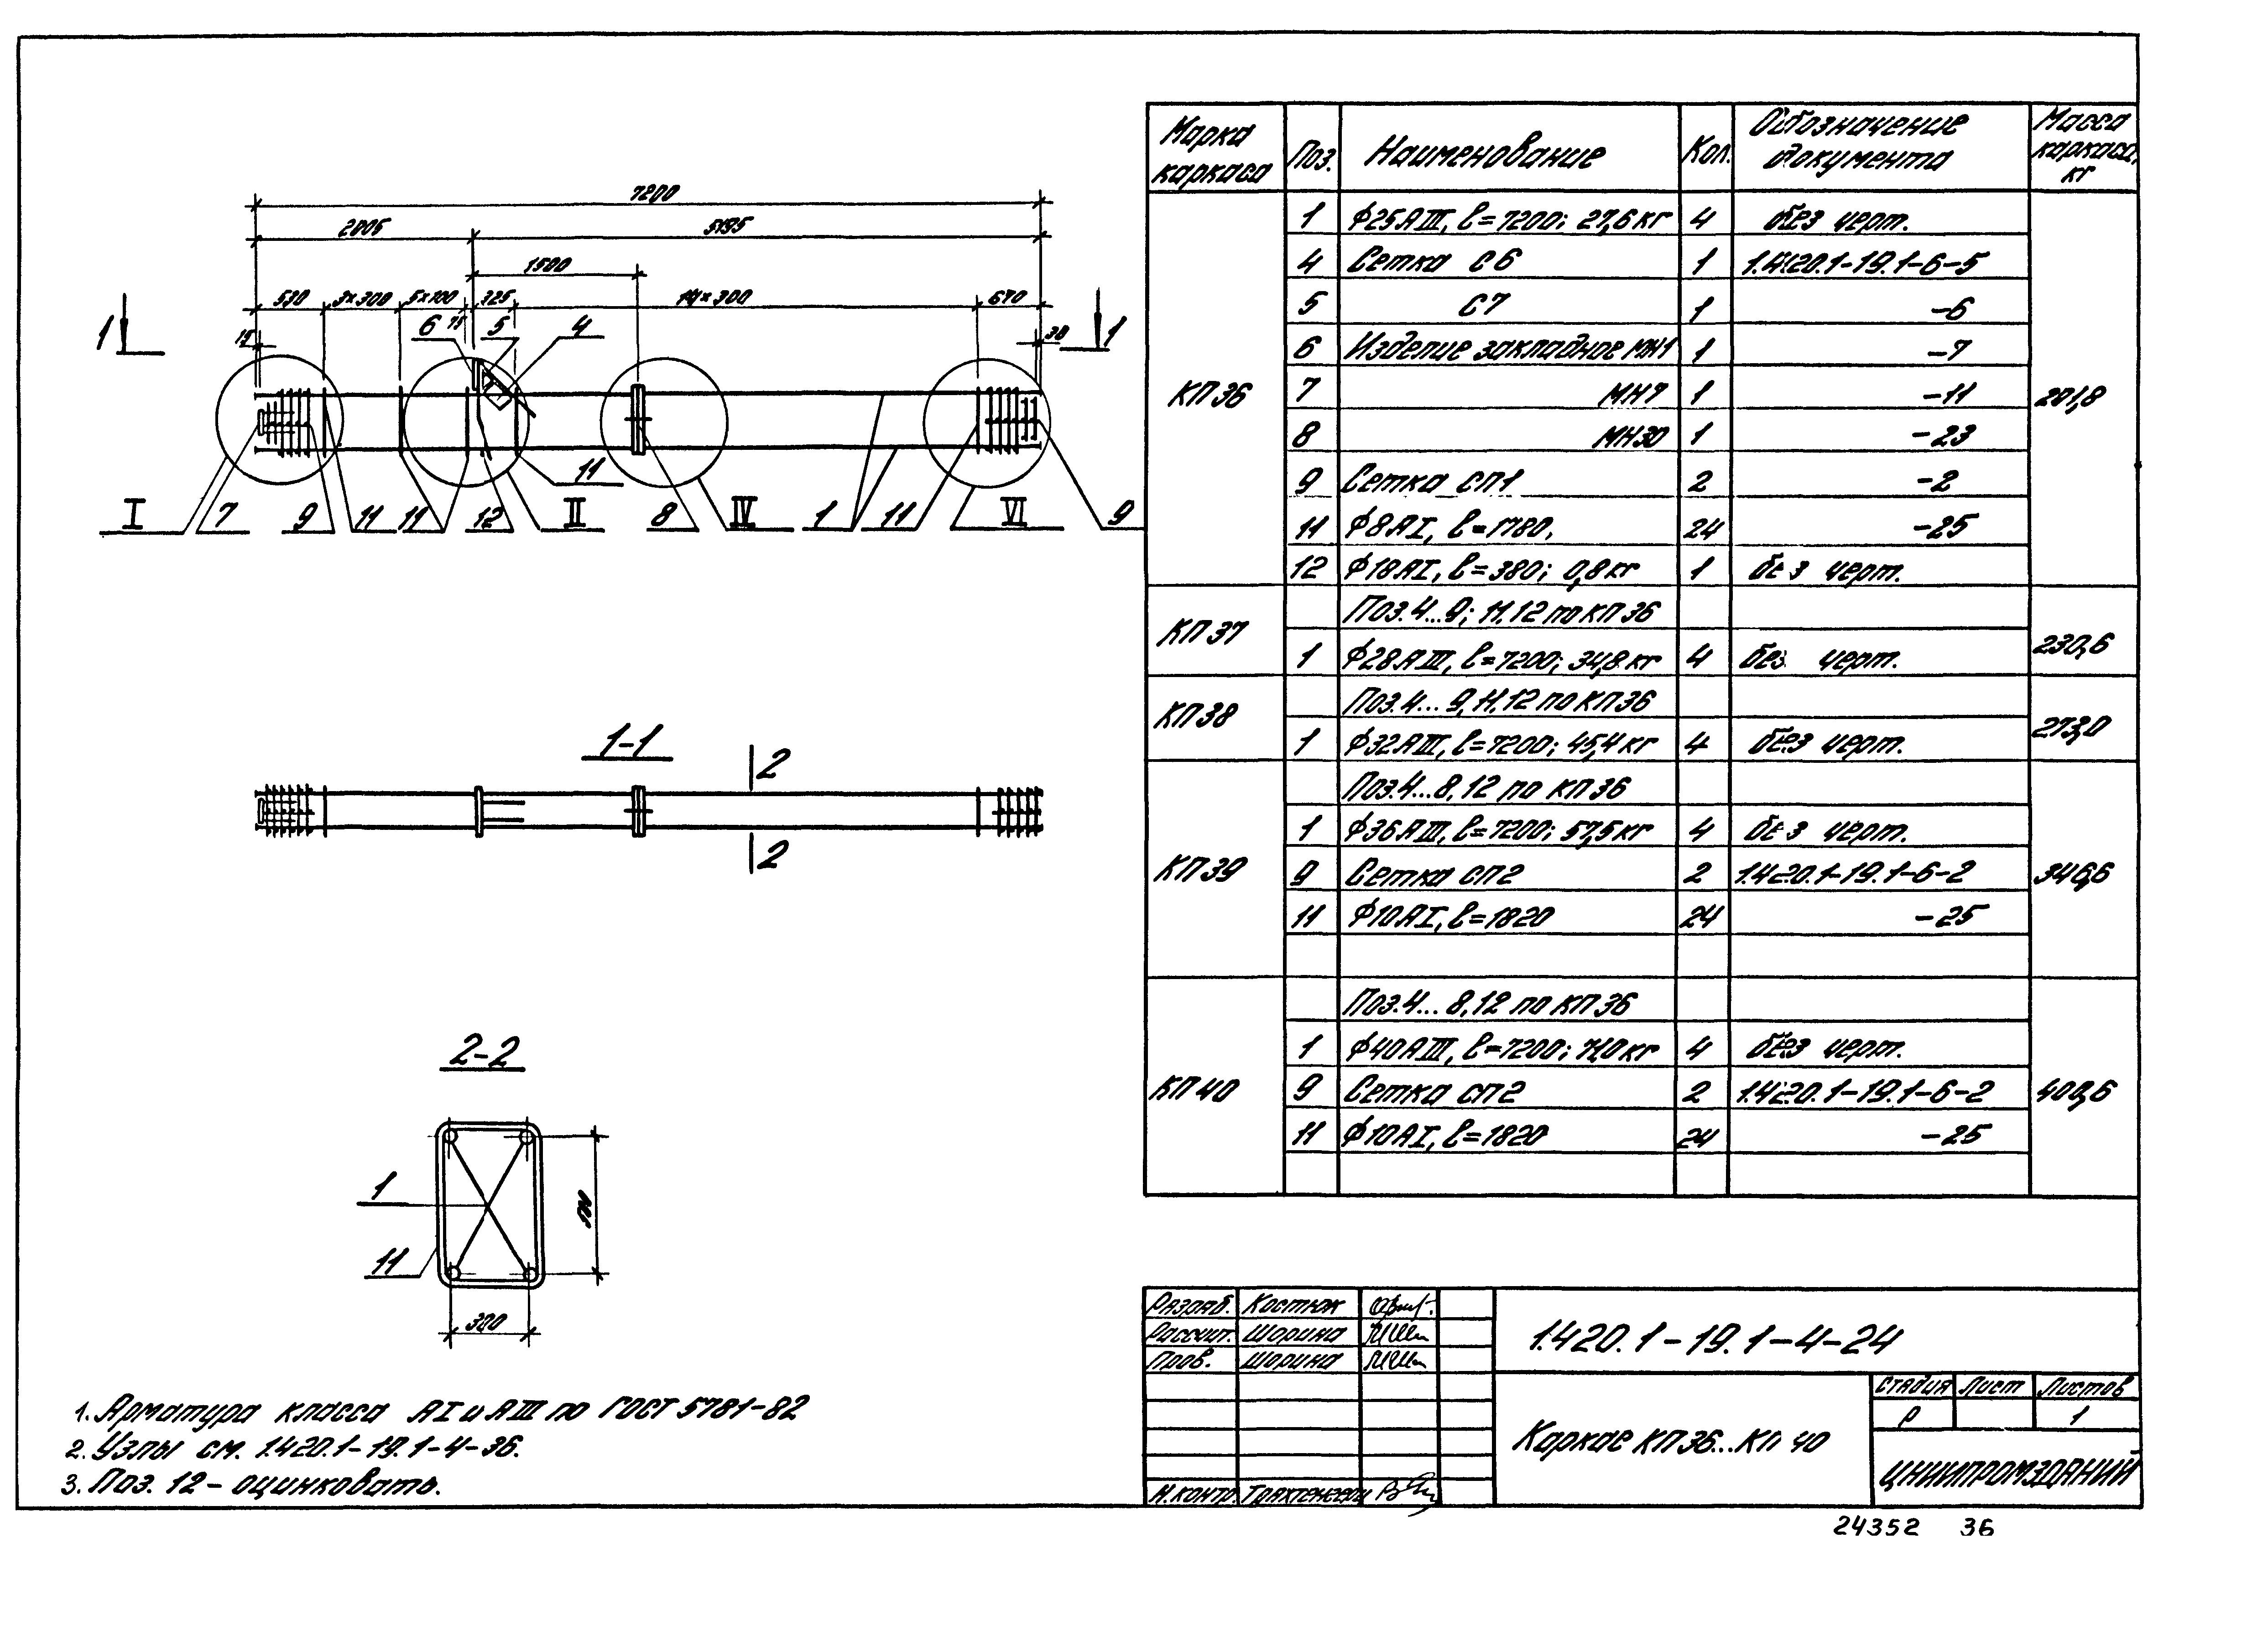 7200
2005 5195
1500
530 3×300 5×100 325 14×300 670
15 75 30
1 1
6 5 4
11
I 7 9 11 11 12 II 8 IV 1 11 VI 9
1-1
2
2
2-2
1
11
300
1. Арматура класса АI и АIII по ГОСТ 5781-82
2. Узлы см. 1.420.1-19.1-4-36.
3. Поз. 12 - оцинковать.
Марка каркаса Поз. Наименование Кол. Обозначение документа Масса каркаса, кг
КП36 201,8
1 ф25АIII, ℓ=7200; 27,6 кг 4 без черт.
4 Сетка С6 1 1.420.1-19.1-6-5
5 С7 1 -6
6 Изделие закладное МН1 1 -7
7 МН7 1 -11
8 МН30 1 -23
9 Сетка СП1 2 -2
11 ф8АI, ℓ=1780, 24 -25
12 ф18АI, ℓ=380; 0,8кг 1 без черт.
КП37 230,6
Поз. 4...9; 11,12 по КП36
1 ф28АIII, ℓ=7200; 34,8 кг 4 без черт.
КП38 273,0
Поз. 4...9, 11,12 по КП36
1 ф32АIII, ℓ=7200; 45,4 кг 4 без черт.
КП39 346,6
Поз. 4...8, 12 по КП36
1 ф36АIII, ℓ=7200; 57,5 кг 4 без черт.
9 Сетка СП2 2 1.420.1-19.1-6-2
11 ф10АI, ℓ=1820 24 -25
КП40 400,6
Поз. 4...8, 12 по КП36
1 ф40АIII, ℓ=7200; 71,0 кг 4 без черт.
9 Сетка СП2 2 1.420.1-19.1-6-2
11 ф10АI, ℓ=1820 24 -25
Разраб. Костюк
Рассчит. Шорина
Пров. Шорина
Н.контр.
1.420.1-19.1-4-24
Каркас КП36...КП40
Стадия Лист Листов
Р 1
ЦНИИПРОМЗДАНИЙ
24352 36